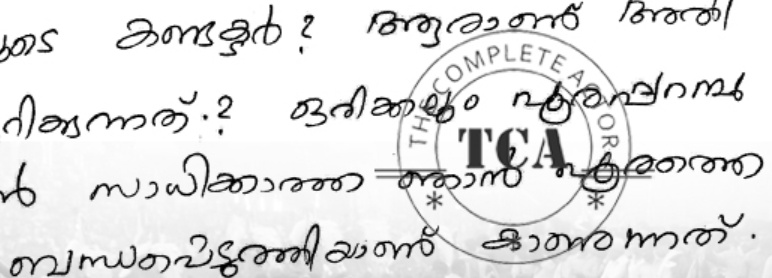 കണ്ടക്ടർ? ആരാണ് അതി
രിക്കുന്നത്.? ഒരിക്കലും പൂരപ്പറമ്പ്
ൻ സാധിക്കാത്ത ഞാൻ പൂരത്തെ
ബന്ധപ്പെടുത്തിയാണ് കാണുന്നത്.
THE COMPLETE AUTHOR
TCA